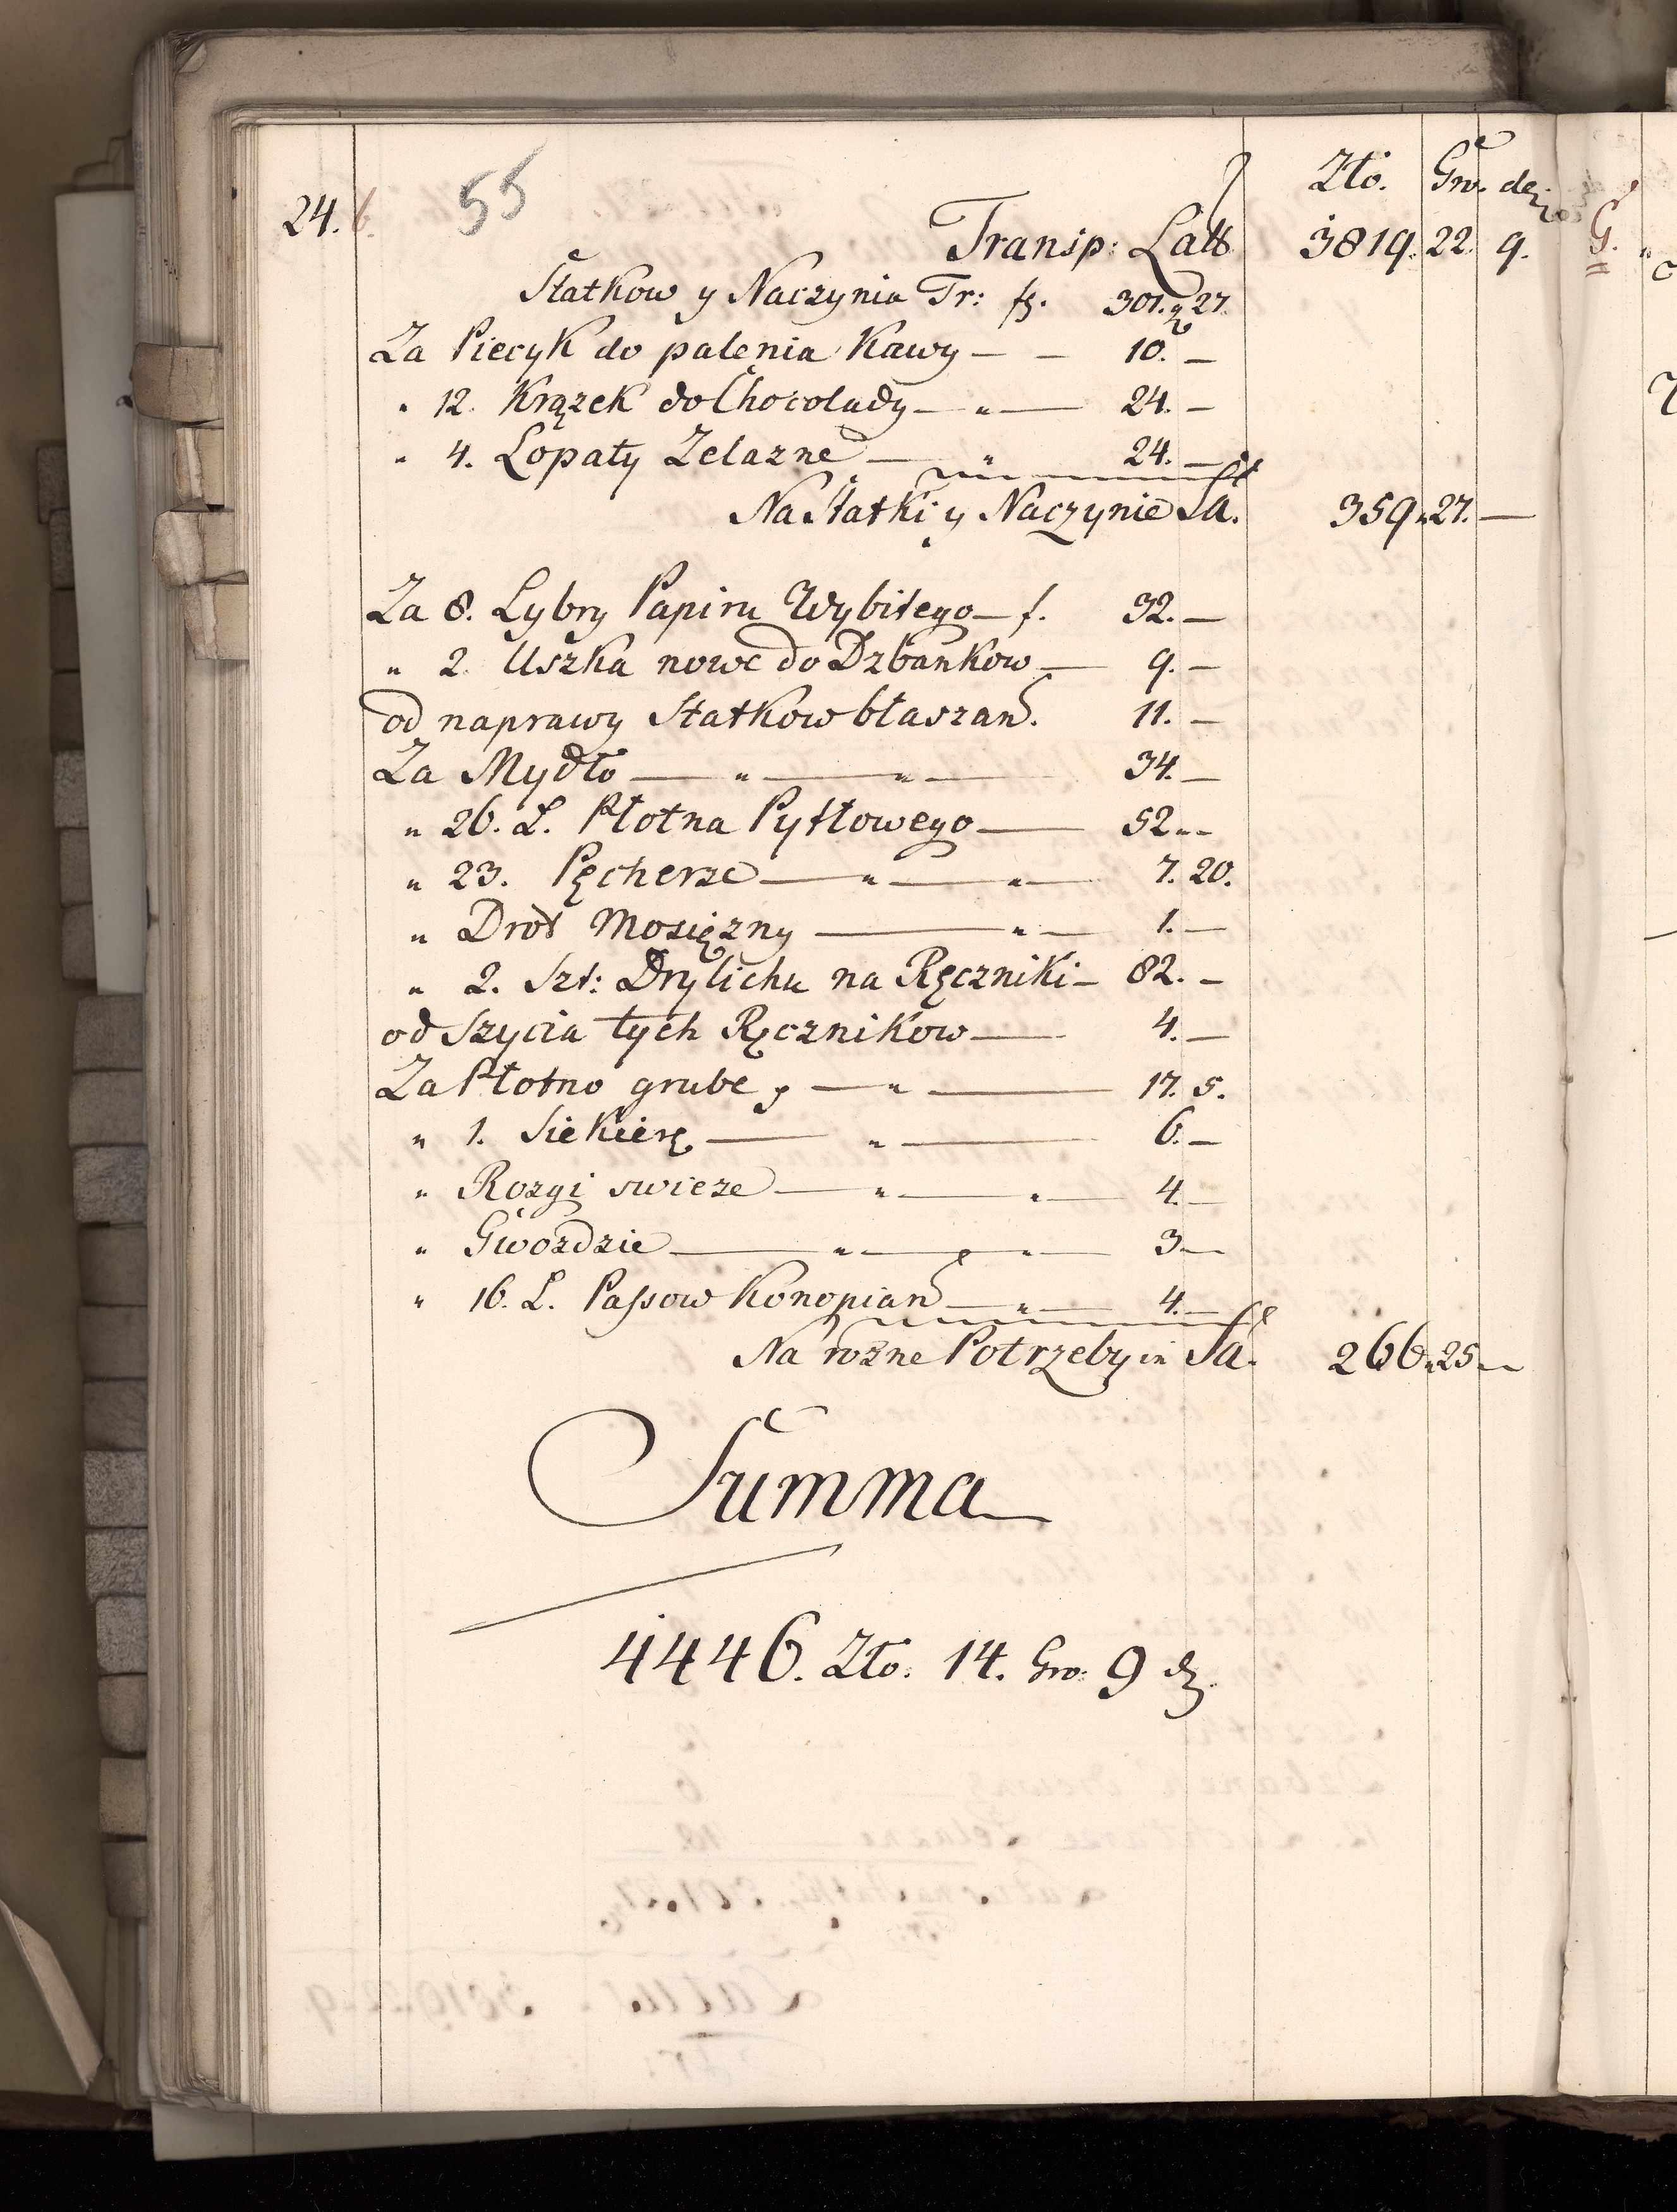 55
Zło. Gro. de.
24. 6.
Transp: Latt 3819. 22. 9.
Statkow y Naczynia Tr: fs. 301. 27.
Za Piecyk do palenia Kawy — — 10. —
" 12. Krązek do Chocolady — " — 24. —
" 4. Łopaty Zelazne — " 24. —
Na Statki y Naczynie Sa. 359 " 27. —
Za 8. Lybry Papiru Wybitego — f. 32. —
" 2. Uszka nowe do Dzbankow — 9. —
od naprawy Statkow błaszan. 11. —
Za Mydło — " — " — 34. —
" 26. Ł. Płotna Pytlowego — 52 " -
" 23. Pęcherze — " — " — 7. 20.
" Drot Mosięzny — " — 1. —
" 2. Szt: Drylichu na Ręczniki — 82. —
od Szycia tych Ręcznikow — 4. —
Za Płotno grube — " — 17. 5.
" 1. Siekierę — " — 6. —
" Rozgi swieze — " — " — 4. —
" Gwozdzie — " — " — 3 —
" 16. Ł. Passow Konopian — " — 4. —
Na rozne Potrzeby in Sa. 266 " 25 —
Summa
4446. Zło. 14. Gro: 9 d.
G.